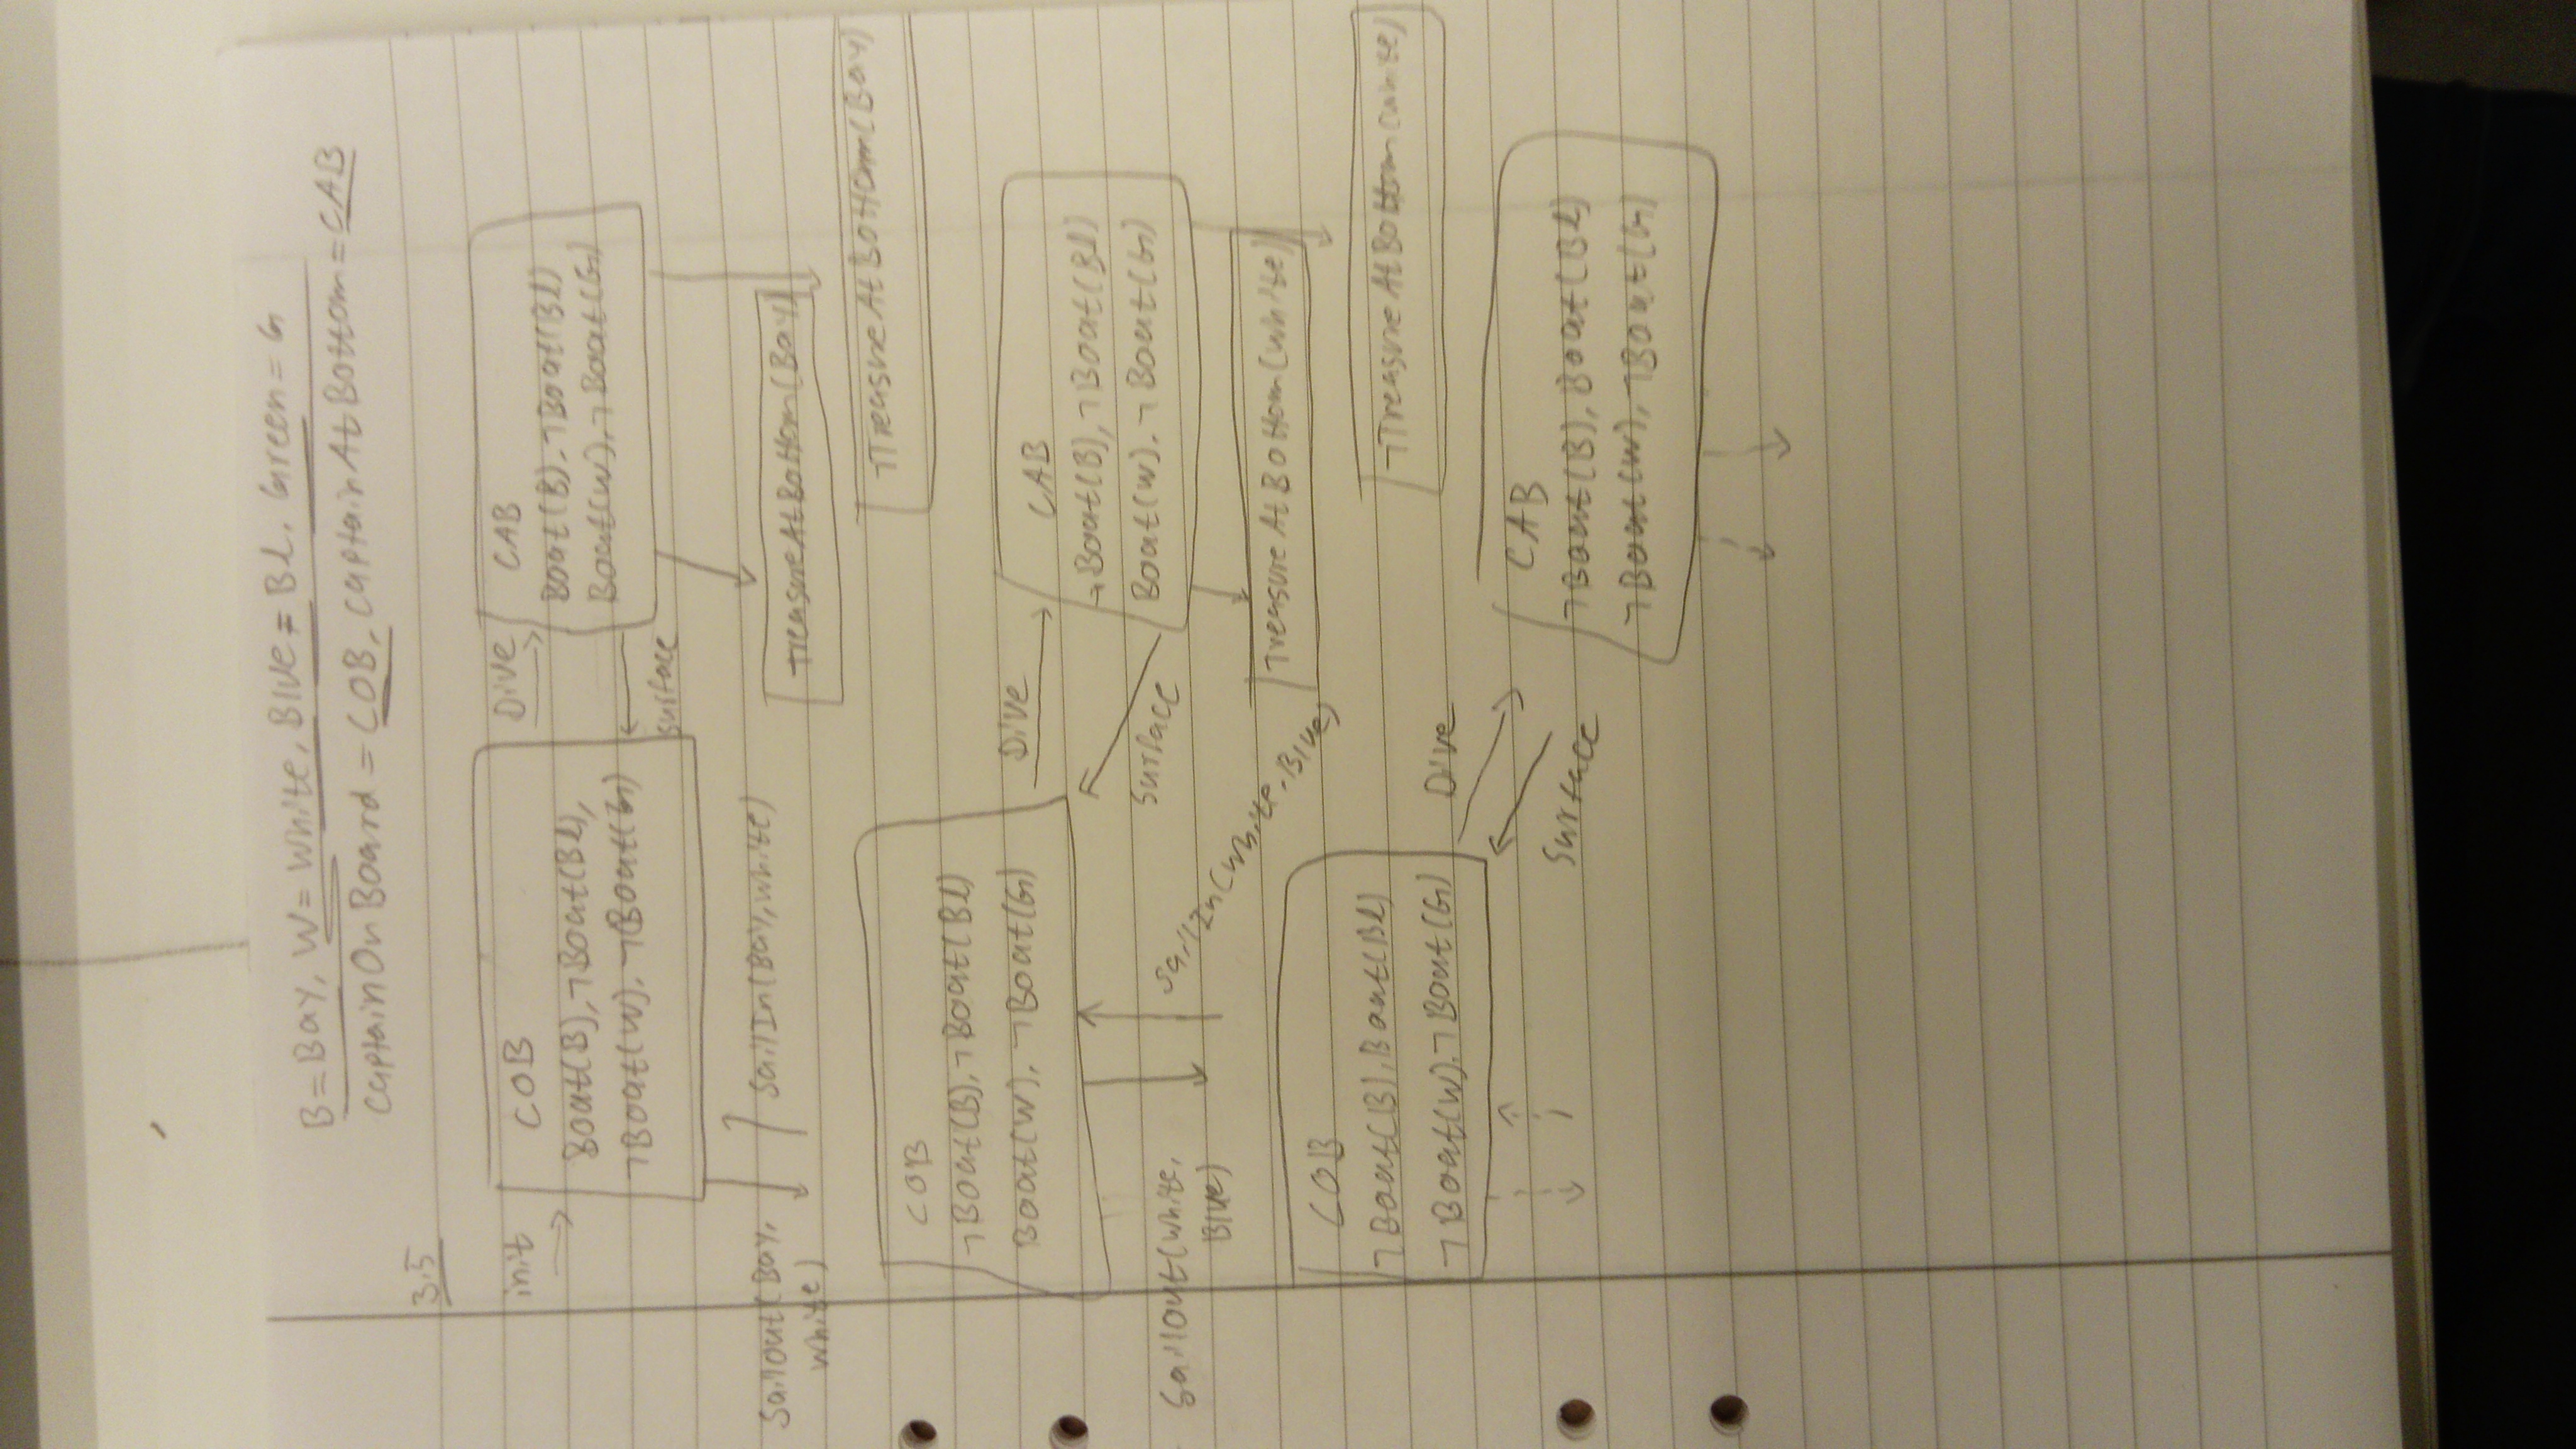 B=Bay, W=White, Blue=Bl, Green=G
CaptainOnBoard=COB, CaptainAtBottom=CAB
3.5
init
COB
Boat(B),¬Boat(Bl),
¬Boat(W),¬Boat(G)
Dive
Surface
CAB
Boat(B),¬Boat(Bl)
Boat(W),¬Boat(G)
SailOut(Bay,
White)
SailIn(Bay,White)
TreasureAtBottom(Bay)
¬TreasureAtBottom(Bay)
COB
¬Boat(B),¬Boat(Bl)
Boat(W),¬Boat(G)
Dive
Surface
CAB
¬Boat(B),¬Boat(Bl)
Boat(W),¬Boat(G)
SailOut(White,
Blue)
TreasureAtBottom(White)
¬TreasureAtBottom(White)
COB
¬Boat(B),Boat(Bl)
¬Boat(W),¬Boat(G)
Dive
Surface
CAB
¬Boat(B),Boat(Bl)
¬Boat(W),¬Boat(G)